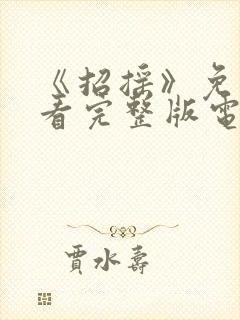 《招摇》免
看完整版電
賈水壽